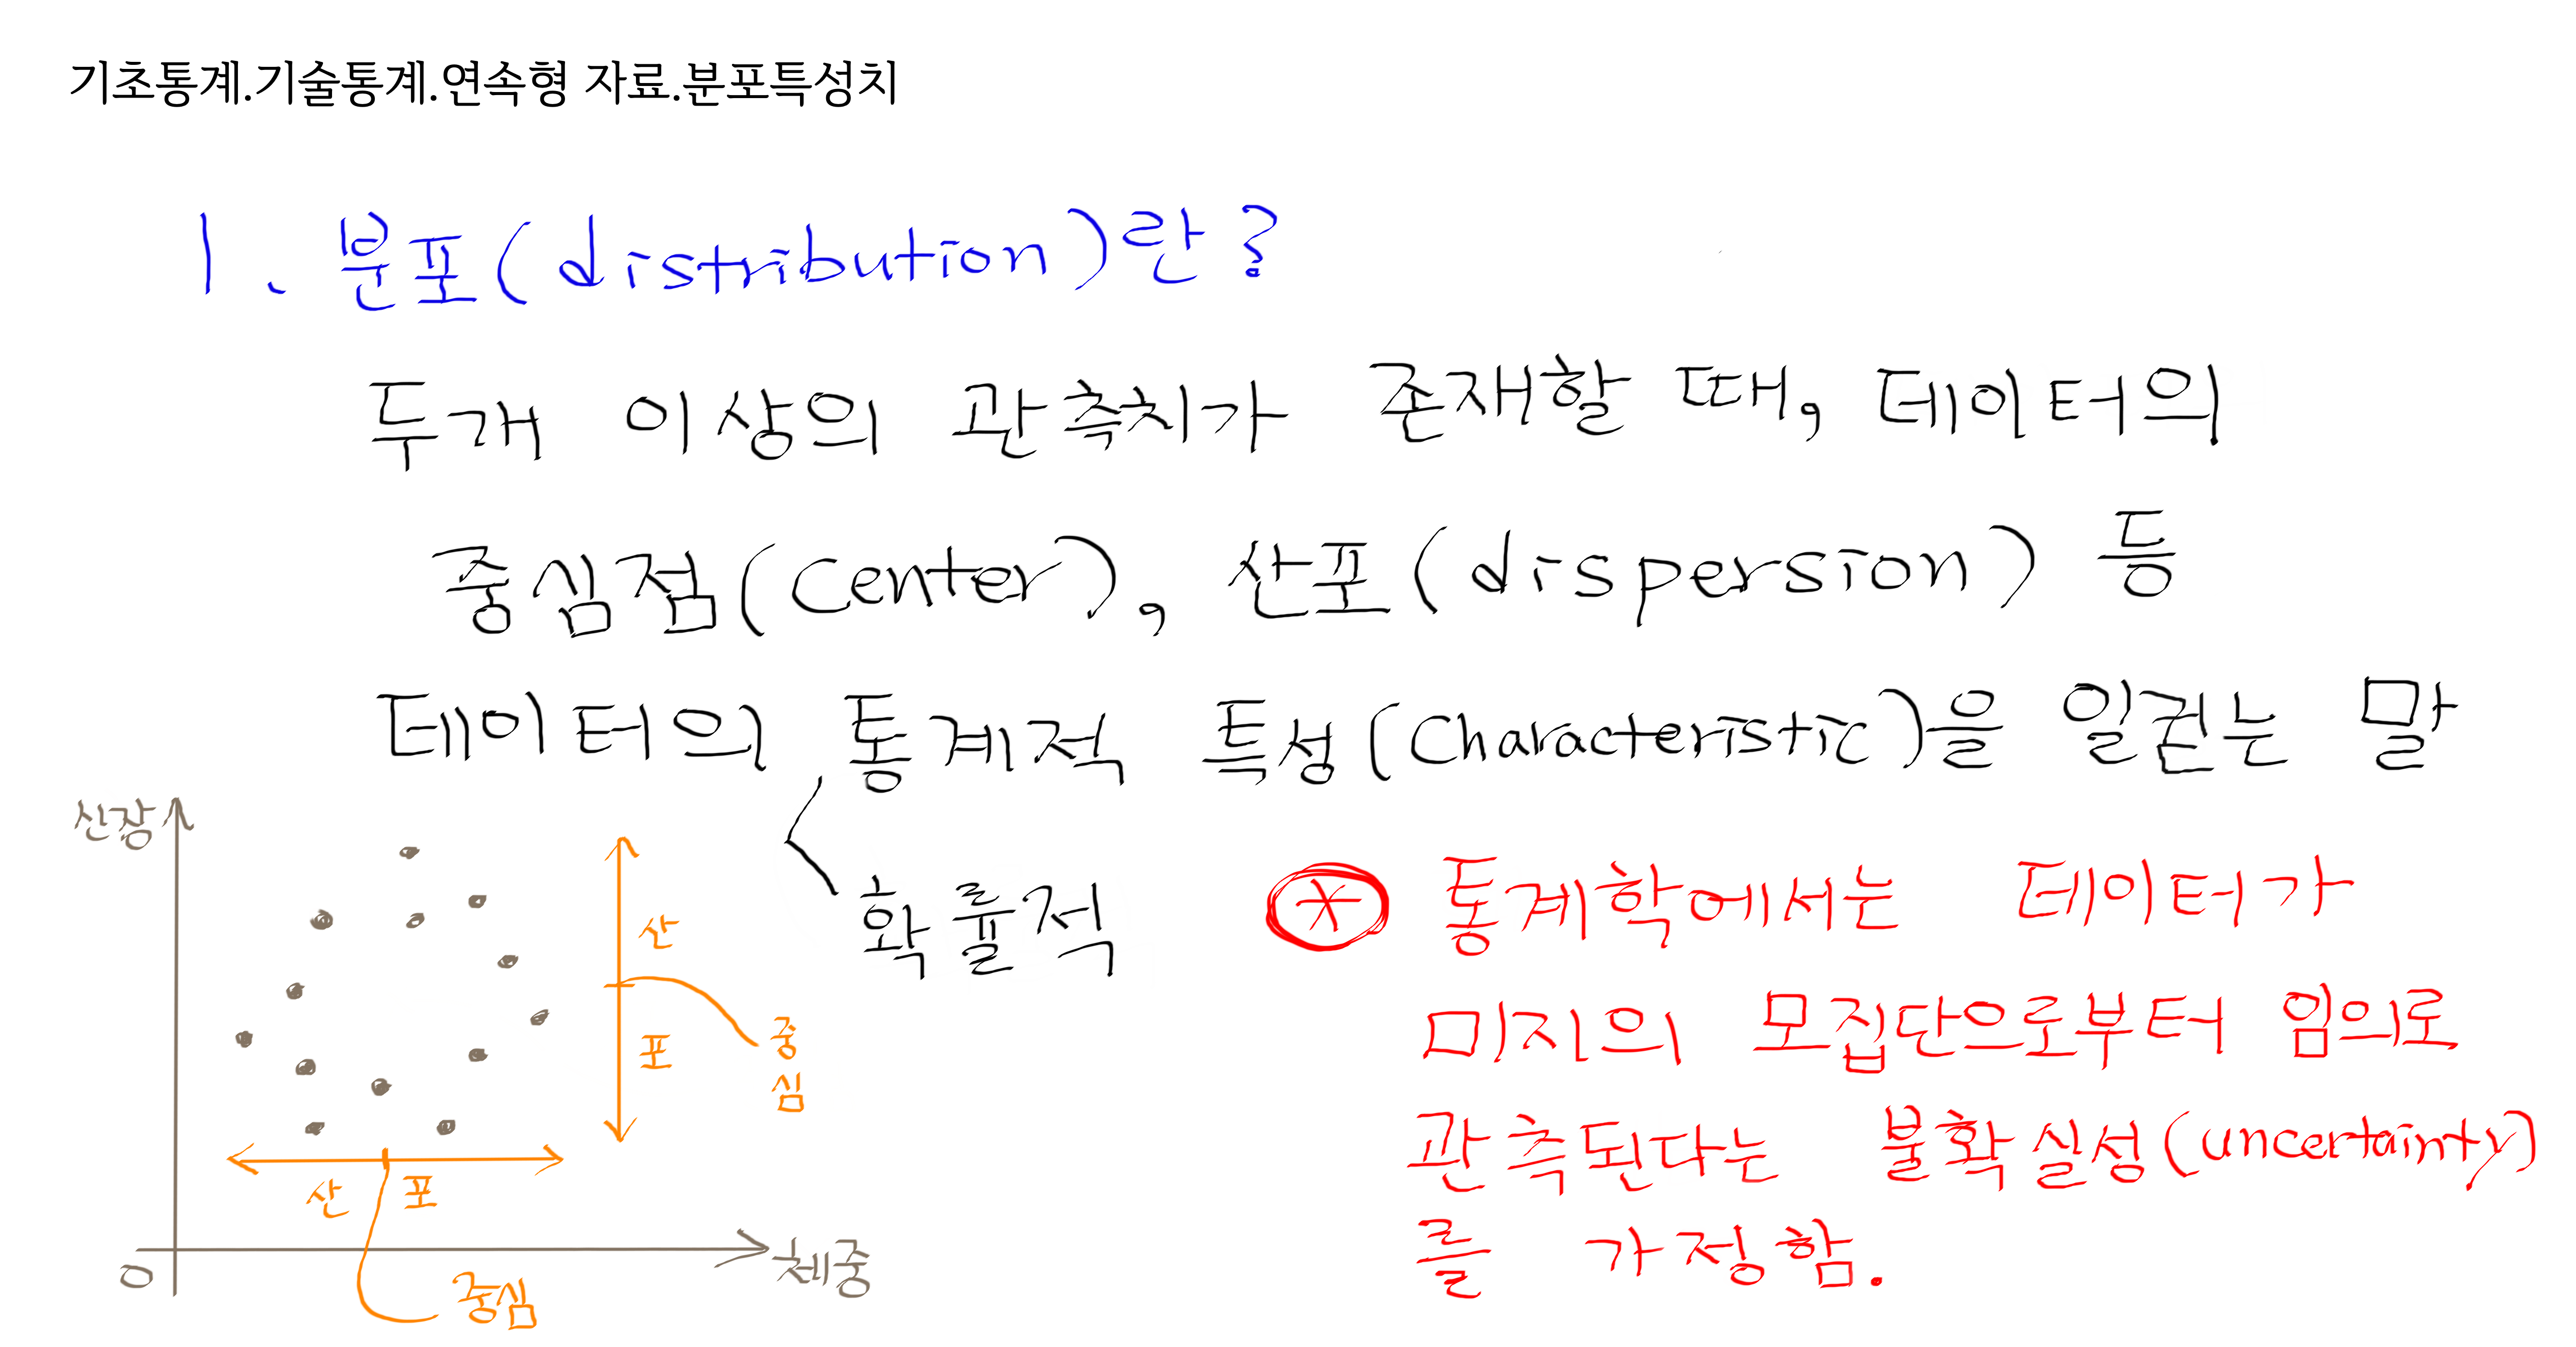 기초통계.기술통계.연속형 자료.분포특성치
1. 분포(distribution)란?
두개 이상의 관측치가 존재할 때, 데이터의
중심점(center), 산포(dispersion) 등
데이터의 통계적 특성(characteristic)을 일컫는 말
확률적
신장
산
포
중
심
산 포
중심
0
체중
* 통계학에서는 데이터가
미지의 모집단으로부터 임의로
관측된다는 불확실성(uncertainty)
를 가정함.